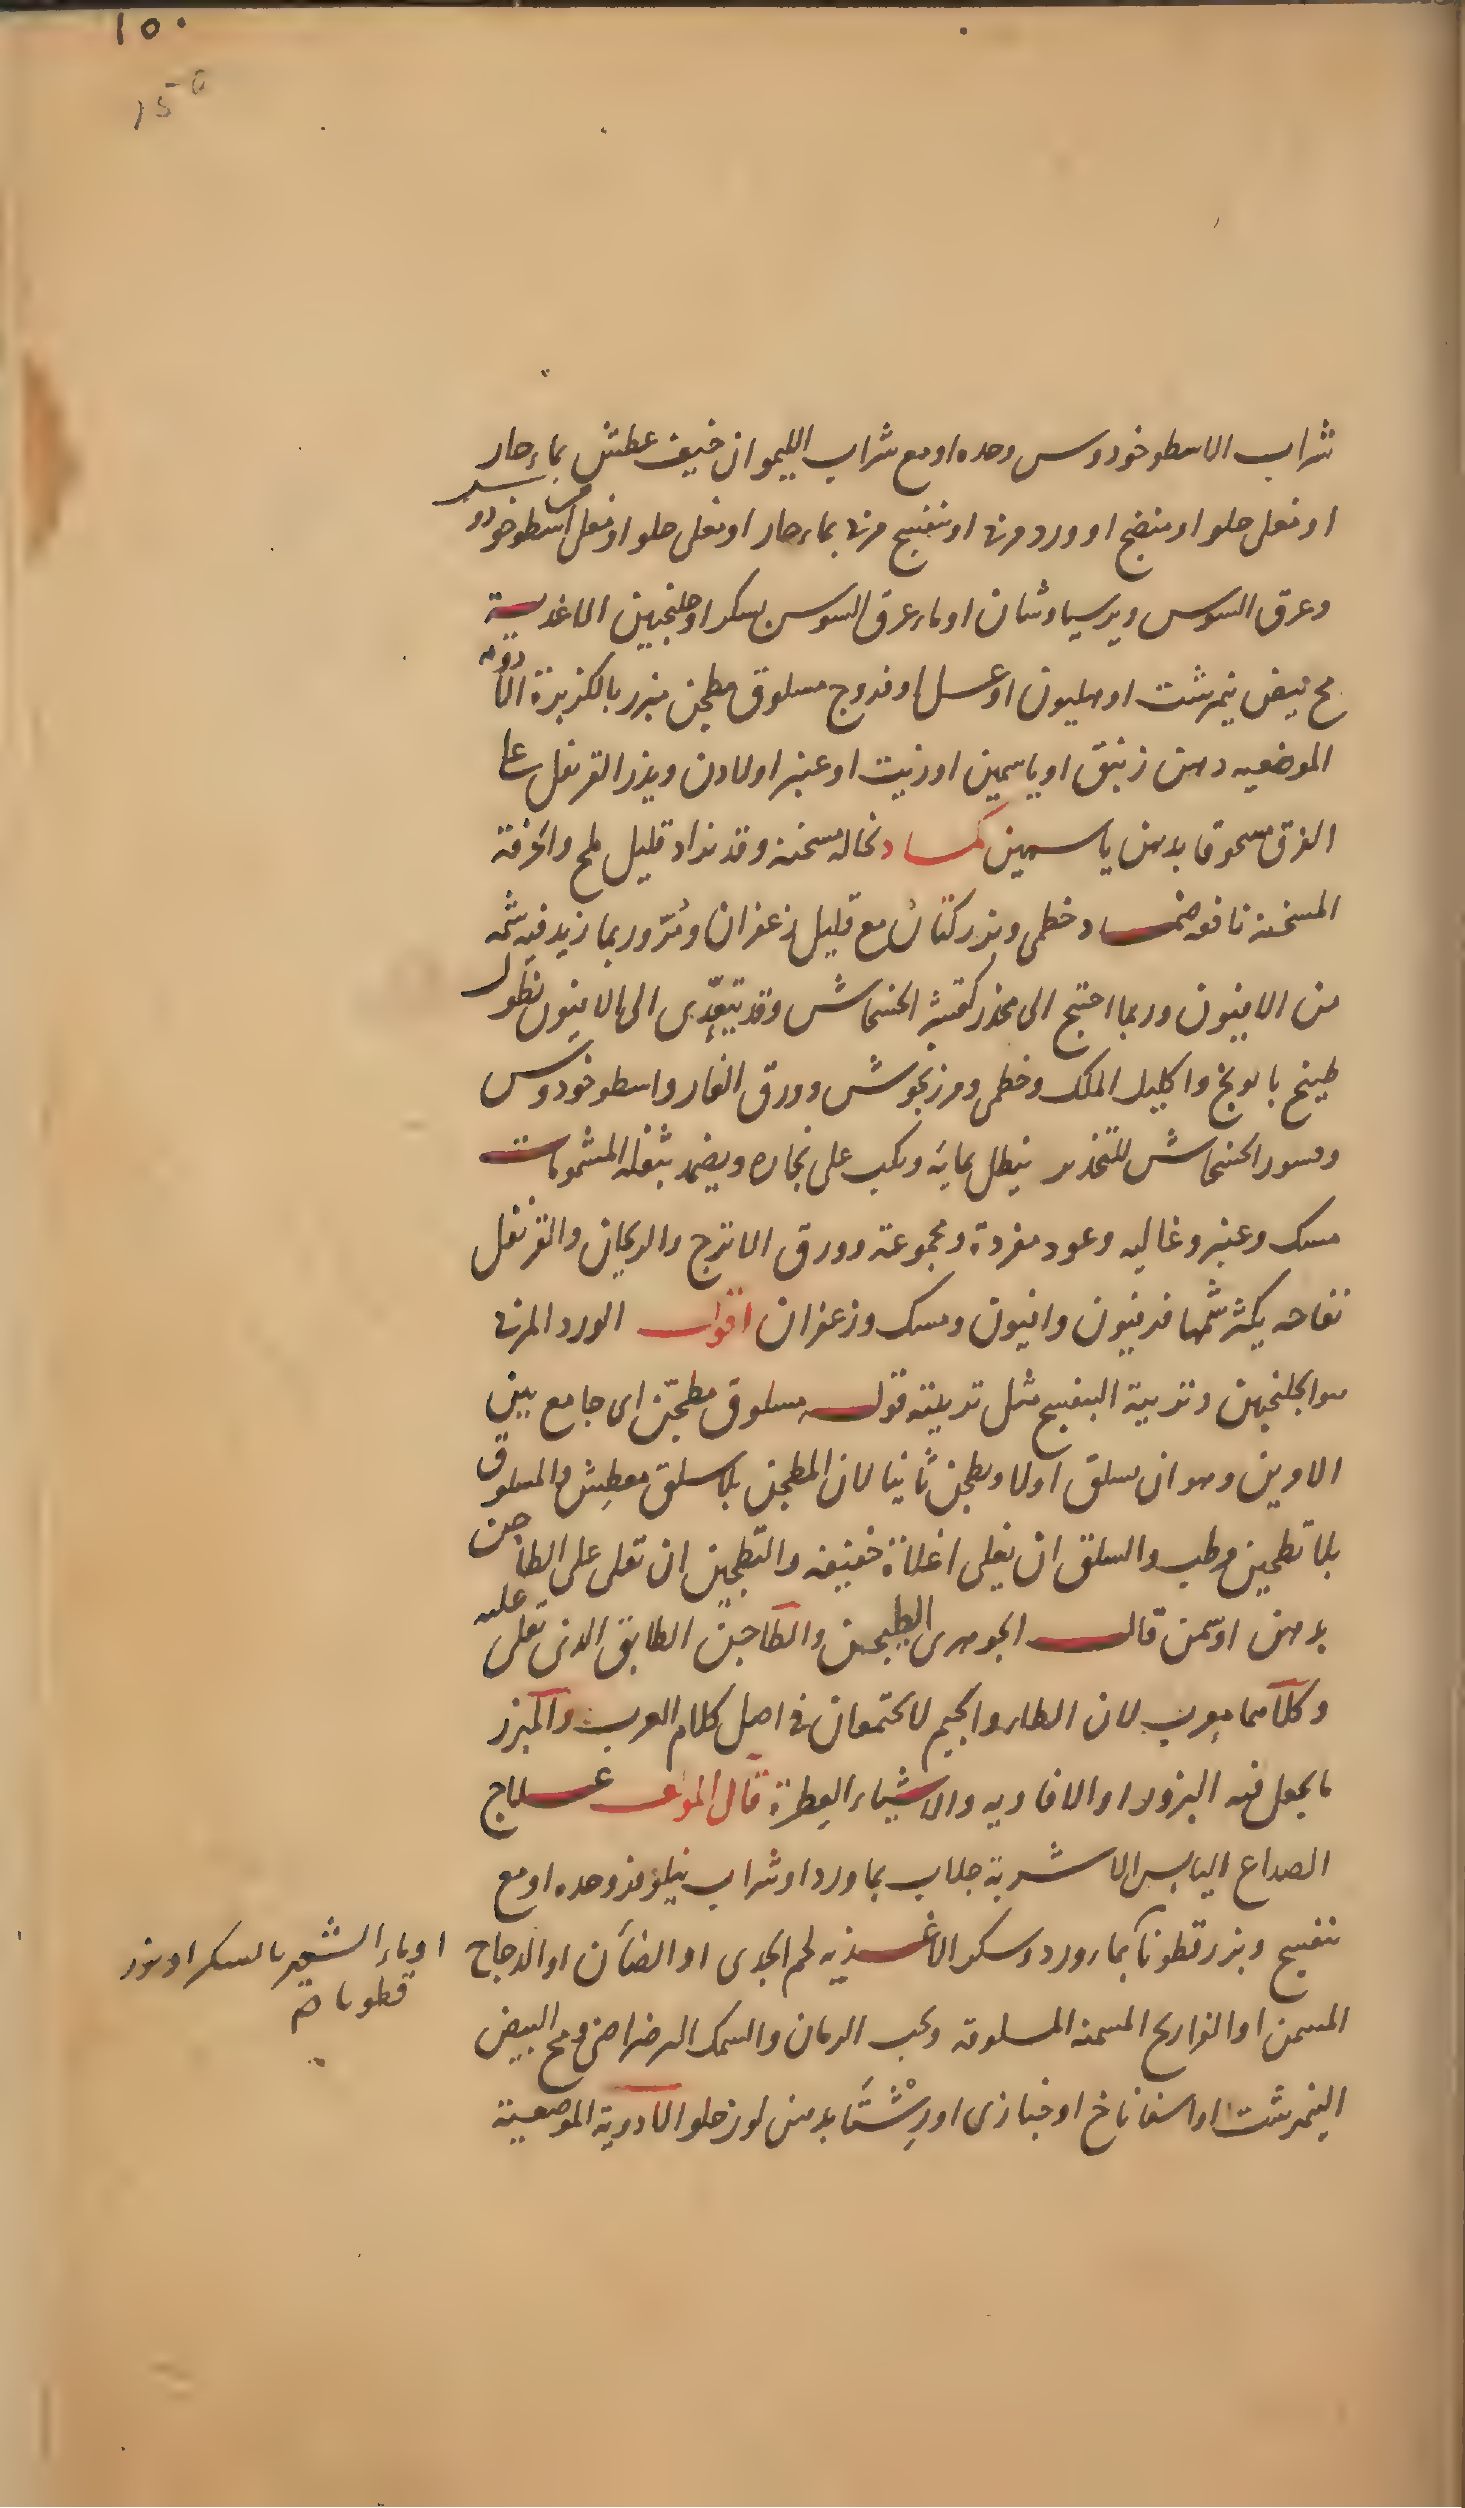 ١٥٠
150
شراب الاسطوخودوس وحده او مع شراب الليمو ان خيف عطش بماء حار
او مغلى حلو او منضج او ورد مربى او بنفسج مربى بماء حار او مغلى حلو او مغلى اسطوخودوس
وعرق السوس وبرسياوشان او ماء عرق السوس بسكر او جلنجبين الاغذية
مح بيض نيمرشت او هليون او عسل او فروج مسلوق مطجن مبزر بالكزبرة الادوية
الموضعيه دهن زنبق او ياسمين او زيت او عنبر او لادن ويذر القرنفل على
الفرق مسحوقا بدهن ياسمين كماد نخاله مسخنة وقد يزاد قليل ملح والخرقة
المسخنة نافعه ضماد خطمى وبزر كتان مع قليل زعفران ومر وربما زيد فيه شمه
من الافيون وربما احتيج الى مخدر كقشر الخشخاش وقد يتعدى الى الافيون نطول
طبيخ بابونج واكليل الملك وخطمى ومرزنجوش وورق الغار واسطوخودوس
وقسور الخشخاش للتخدير ينطل بمائه ويكب على بخاره ويضمد بثفله المشمومات
مسك وعنبر وغاليه وعود مفردة ومجموعة وورق الاترج والريحان والقرنفل
تفاحه يكثر شمها فربيون وافيون ومسك وزعفران اقول الورد المربى
هو الجلنجبين وتربية البنفسج مثل تربيته قوله مسلوق مطجن اى جامع بين
الامرين وهو ان يسلق اولا ويطجن ثانيا لان المطجن بلا سلق معطش والمسلوق
بلا تطجين مرطب والسلق ان يغلى اغلاة خفيفه والتطجين ان تقلى على الطاجن
بدهن او سمن قال الجوهرى الطيجن والطاجن الطابق الذى تقلى عليه
وكلاهما معرب لان الطاء والجيم لا يجتمعان فى اصل كلام العرب والمبزر
ما يجعل فيه البزور او الافاويه والاشياء العطرة قال المولف علاج
الصداع اليابس الاشربة جلاب بماورد او شراب نيلوفر وحده او مع
بنفسج وبزرقطونا بماء ورد وسكر الاغذيه لحم الجدى او الضأن او الدجاج
المسمن او الفراريج المسمنة المسلوقة وحب الرمان والسمك الرضراضى ومح البيض
النيمرشت او اسفاناخ او خبازى او رشتا بدهن لوز حلو الادوية الموضعية
او ماء الشعير بالسكر او بزر
قطونا صح